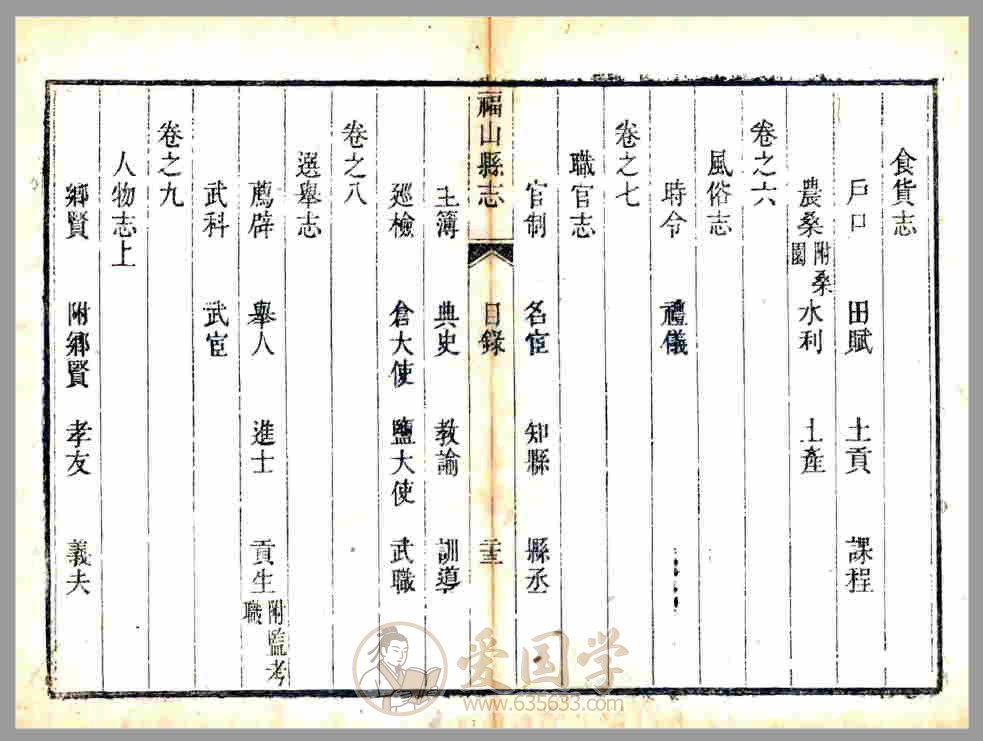 食貨志
戶口 田賦 土貢 課程
農桑附桑園 水利 土產
卷之六
風俗志
時令 禮儀
卷之七
職官志
官制 名宦 知縣 縣丞
福山縣志 目錄
主簿 典史 教諭 訓導
廵檢 倉大使 鹽大使 武職
卷之八
選舉志
薦辟 舉人 進士 貢生附監考職
武科 武宦
卷之九
人物志上
鄉賢 附鄉賢 孝友 義夫
爱国学
www.635633.com